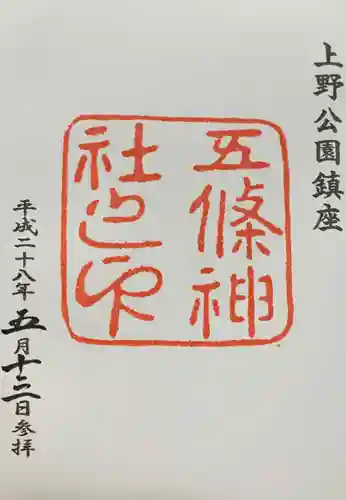 上野公園鎮座
五條神
社之印
平成二十八年五月十三日参拝